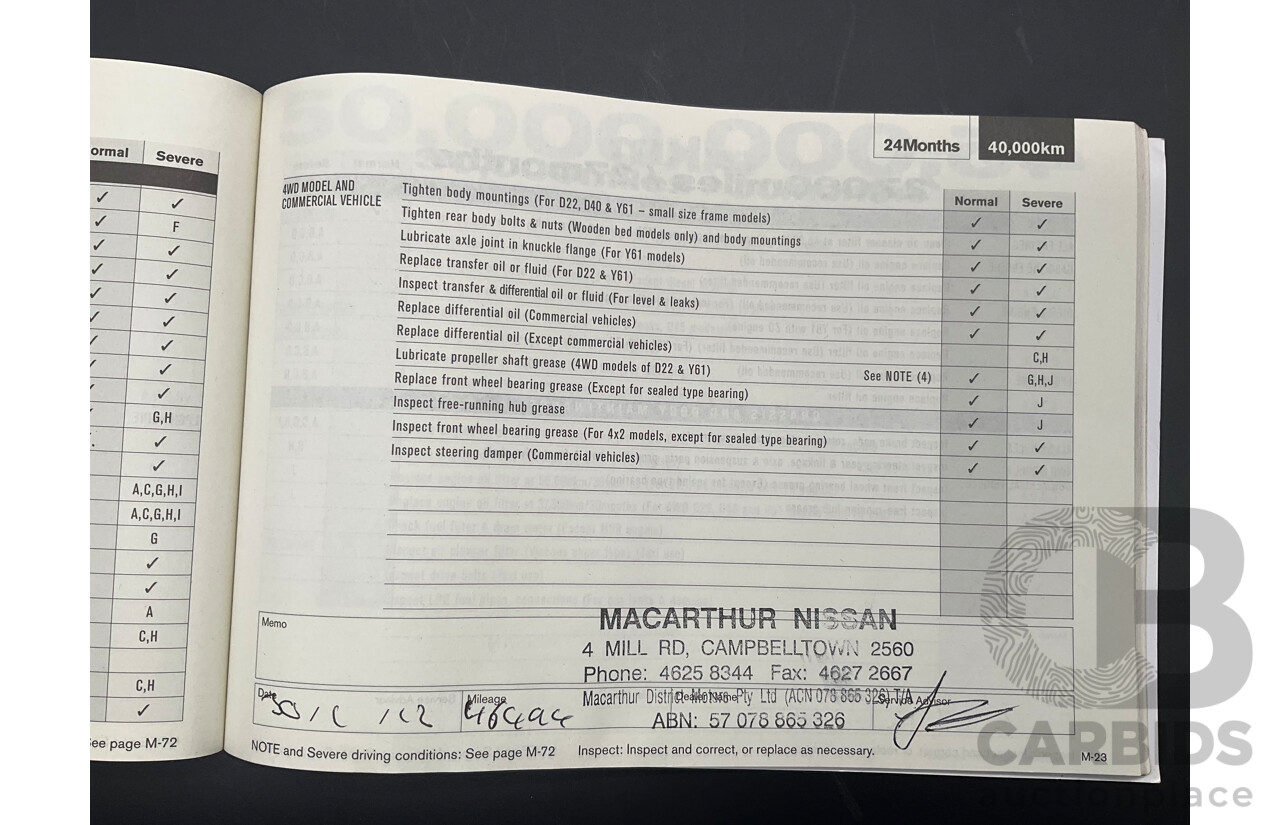 ormal Severe
✓ ✓
✓ F
✓ ✓
✓ ✓
✓ ✓
✓ ✓
✓ ✓
✓ ✓
✓ ✓
G,H
✓
✓
A,C,G,H,I
A,C,G,H,I
G
✓
✓
A
C,H
C,H
✓
ee page M-72
24Months 40,000km
Normal Severe
4WD MODEL AND
COMMERCIAL VEHICLE
Tighten body mountings (For D22, D40 & Y61 – small size frame models) ✓ ✓
Tighten rear body bolts & nuts (Wooden bed models only) and body mountings ✓ ✓
Lubricate axle joint in knuckle flange (For Y61 models) ✓ ✓
Replace transfer oil or fluid (For D22 & Y61) ✓ ✓
Inspect transfer & differential oil or fluid (For level & leaks) ✓ ✓
Replace differential oil (Commercial vehicles) ✓ ✓
Replace differential oil (Except commercial vehicles) C,H
Lubricate propeller shaft grease (4WD models of D22 & Y61) See NOTE (4) ✓ G,H,J
Replace front wheel bearing grease (Except for sealed type bearing) ✓ J
Inspect free-running hub grease ✓ J
Inspect front wheel bearing grease (For 4x2 models, except for sealed type bearing) ✓ ✓
Inspect steering damper (Commercial vehicles) ✓ ✓
Memo
MACARTHUR NISSAN
4 MILL RD, CAMPBELLTOWN 2560
Phone: 4625 8344 Fax: 4627 2667
Macarthur District Motors Pty Ltd (ACN 078 865 326) T/A
ABN: 57 078 865 326
Date
Mileage
Dealer Name
Service Advisor
NOTE and Severe driving conditions: See page M-72 Inspect: Inspect and correct, or replace as necessary.
M-23
CARBIDS
auctionplace